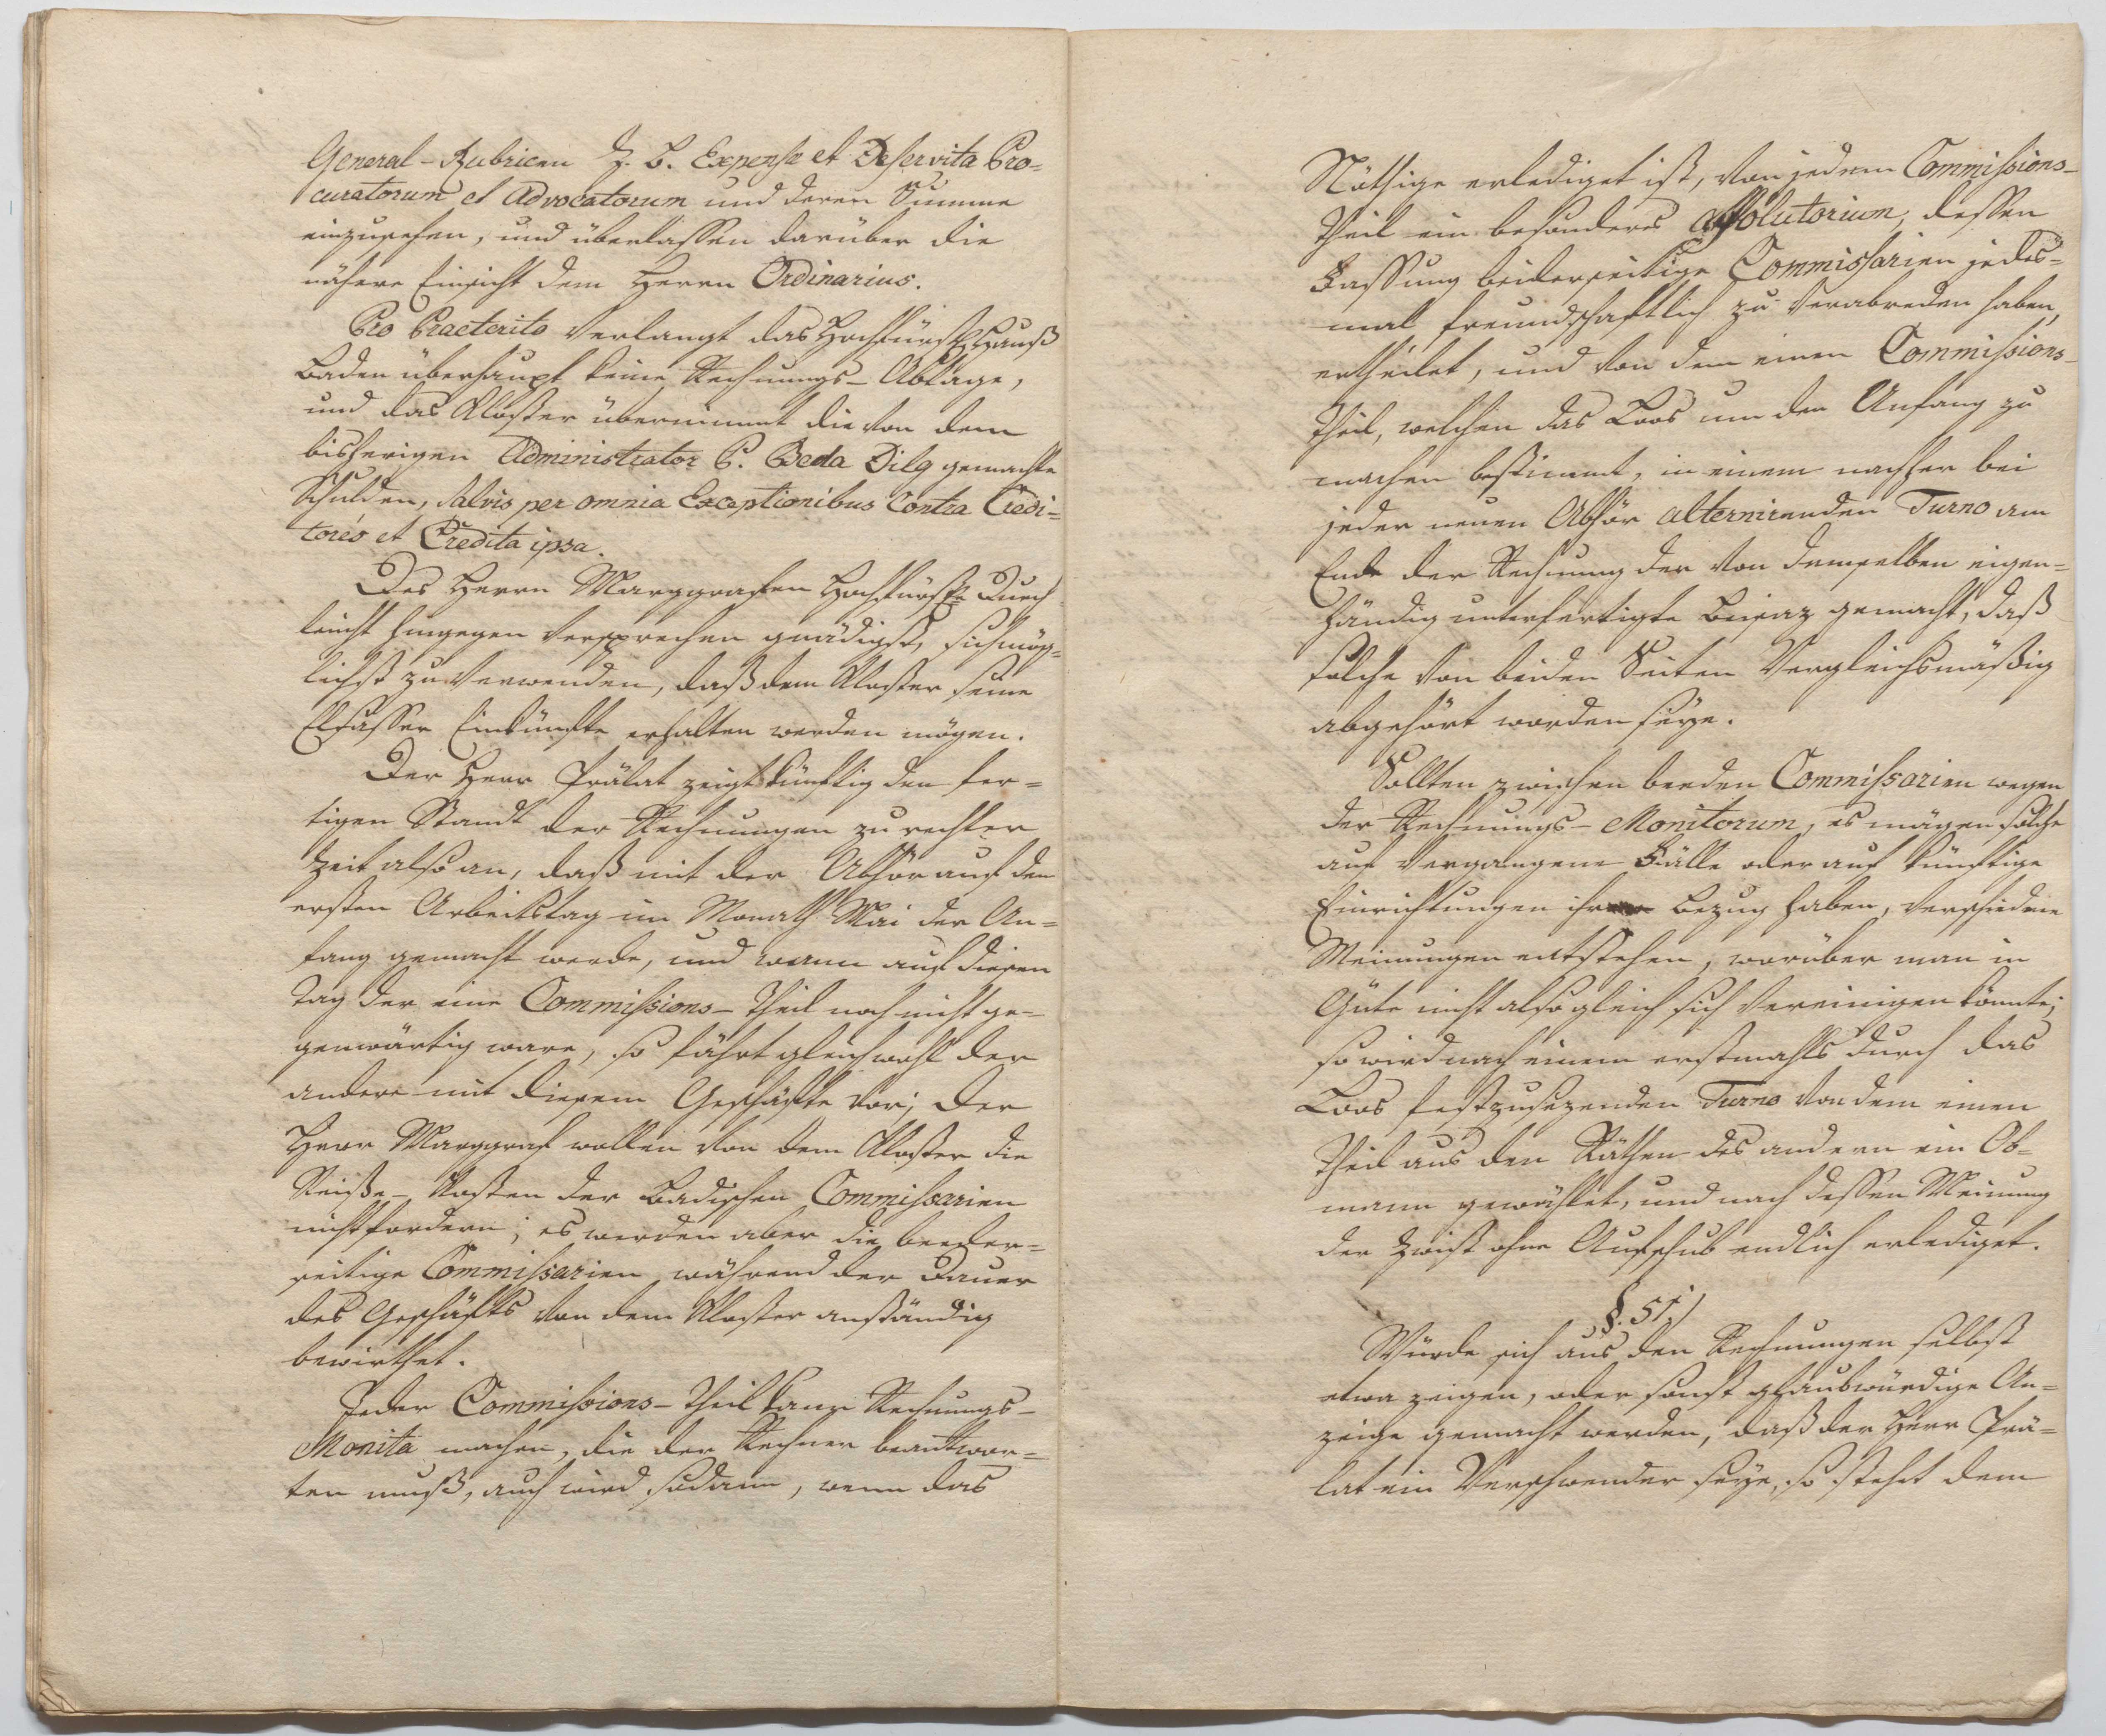 General-Rubriken z. B. Expensæ et Deservita Pro=
curatorum et Advocatorum und deren Summe
einzusehen, und überlassen darüber die
nähere Einsicht dem Herrn Ordinarius.
Pro Praeterito verlangt das Hochfürstl. Hauß
Baden überhaupt keine Rechnungs-Ablage,
und das Kloster übernimmt die von dem
bisherigen Administrator P. Beda Dilg gemachte
Schulden, Salvis per omnia Exceptionibus Contra Credi=
tores et Credita ipsa.
Des Herrn Marggrafen Hochfürstle Durch
leucht hingegen versprechen gnädigst, sich mög=
lichst zu verwenden, daß dem Kloster seine
Elsasser Einkünfte erhalten werden mögen.
Der Herr Prälat zeigt künftig den fer=
tigen Standt der Rechnungen zu rechter
Zeit also an, daß mit der Abhör auf den
ersten Arbeitstag im Monath Mai der An=
fang gemacht werde, und wann auf diesen
Tag der eine Commissions-Theil noch nicht ge-
genwärtig ware, so fährt gleichwohl der
andere mit diesem Geschäfte vor; Der
Herr Marggraf wollen von dem Kloster die
Reiße-Kosten der Badischen Commissarien
nicht fordern; es werden aber die beeder=
seitige Commissarien während der Dauer
des Geschäfts von dem Kloster anständig
bewirthet.
Jeder Commissions-Theil kann Rechnungs-
Monita machen, die der Rechner beantwor=
ten muß, auch wird sodann, wenn das
Nöthige erlediget ist, von jedem Commissions-
Theil ein besonderes Absolutorium, dessen
Fassung beiderseitige Commissarien jedes=
mal freundschaftlich zu verabreden haben,
ertheilet, und von dem einen Commissions-
Theil, welchen das Loos um den Anfang zu
machen bestimmt, in einem nachher bei
jeder neuen Abhör alternirenden Turno am
Ende der Rechnung der von demselben eigen=
händig unterfertigte Beisaz gemacht, daß
solche von beiden Seiten Vergleichsmäßig
abgehört worden seye.
Sollten zwischen beeden Commissarien wegen
der Rechnungs-Monitorum, es mögen solche
auf vergangene Fälle oder auf künftige
Einrichtungen ihren Bezug haben, verschiedene
Meinungen entstehen, worüber man in
Güte nicht alsogleich sich vereinigen könnte;
so wird nach einem erstmahls durch das
Loos festzusezenden Turno von dem einen
Theil aus den Räthen des andern ein Ob=
mann gewählet, und nach dessen Meinung
der Zwist ohne Aufschub endlich erlediget.
§. 51.)
Würde sich aus den Rechnungen selbst
etwa zeigen, oder sonst glaubwürdige An=
zeige gemacht werden, daß der Herr Prä=
lat ein Verschwender seye, so stehet dem